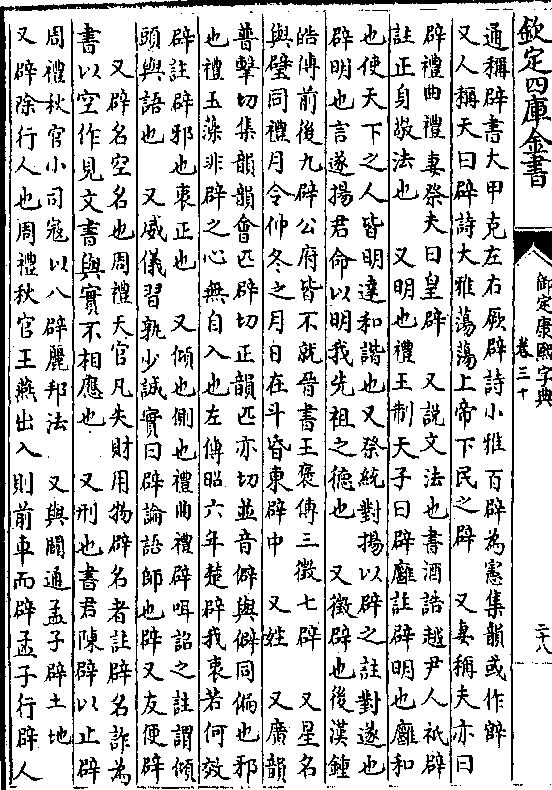 欽定四庫全書
御定康熙字典
卷三十
二十八
通稱辟書大甲克左右厥辟詩小雅百辟為憲集韻或作𨐨
又人稱天曰辟詩大雅蕩蕩上帝下民之辟　又妻稱夫亦曰
辟禮曲禮妻祭夫曰皇辟　又說文法也書酒誥越尹人祇辟
註正身敬法也　又明也禮王制天子曰辟廱註辟明也廱和
也使天下之人皆明達和諧也又祭統對揚以辟之註對遂也
辟明也言遂揚君命以明我先祖之德也　又徵辟也後漢鍾
皓傳前後九辟公府皆不就晉書王褒傳三徵七辟　又星名
與壁同禮月令仲冬之月日在斗昏東辟中　又姓　又廣韻
普擊切集韻韻會匹辟切正韻匹亦切並音僻與僻同偏也邪
也禮玉藻非辟之心無自入也左傳昭六年楚辟我衷若何效
辟註辟邪也衷正也　又傾也側也禮曲禮辟咡詔之註謂傾
頭與語也　又威儀習孰少誠實曰辟論語師也辟又友便辟
又辟名空名也周禮天官凡失財用物辟名者註辟名詐為
書以空作見文書與實不相應也　又刑也書君陳辟以止辟
周禮秋官小司寇以八辟麗邦法　又與闢通孟子辟土地
又辟除行人也周禮秋官王燕出入則前車而辟孟子行辟人